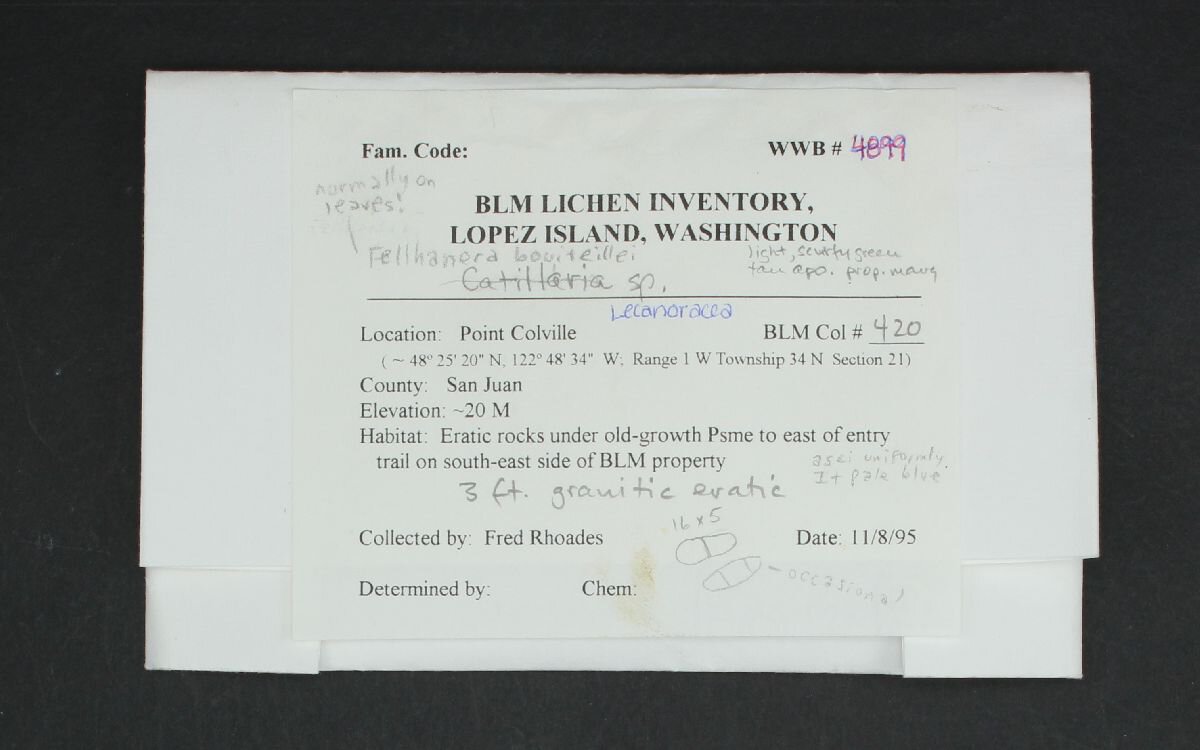 Fam. Code:
WWB # 4899
normally on
leaves!
BLM LICHEN INVENTORY,
LOPEZ ISLAND, WASHINGTON
Fellhanera bouteillei
light, scurfy green
Catillaria sp.
tan apo. prop. marg
Lecanoracea
Location: Point Colville
BLM Col # 420
( ~ 48° 25' 20" N, 122° 48' 34" W; Range 1 W Township 34 N Section 21)
County: San Juan
Elevation: ~20 M
Habitat: Eratic rocks under old-growth Psme to east of entry
trail on south-east side of BLM property
asci uniformly
I+ pale blue
3 ft. granitic eratic
16 x 5
Collected by: Fred Rhoades
Date: 11/8/95
- occasional
Determined by:
Chem: